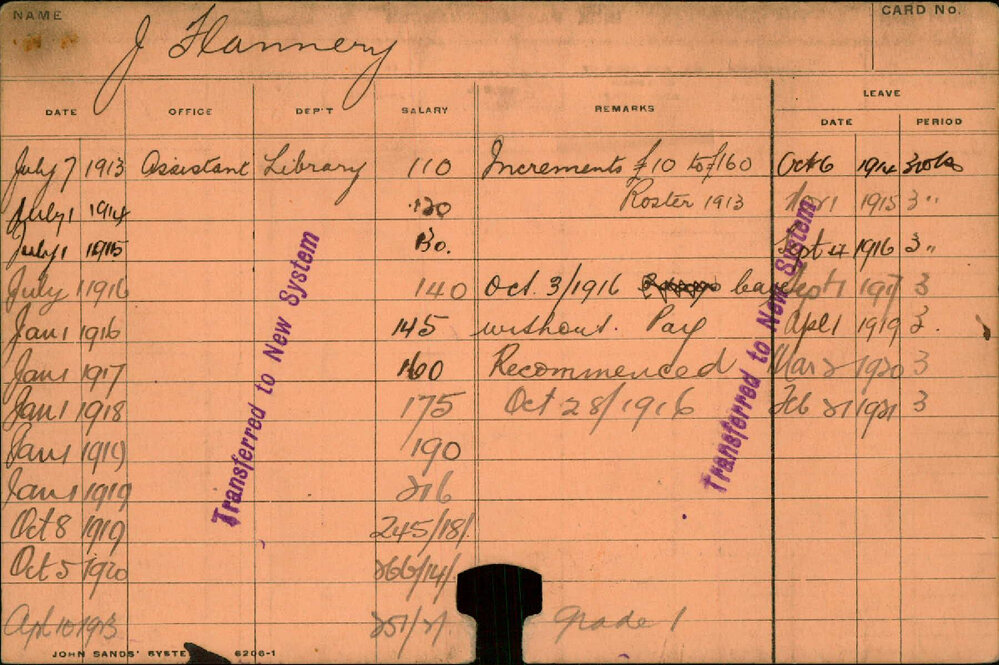 NAME
J Flannery
CARD No.
DATE OFFICE DEP'T SALARY REMARKS LEAVE
DATE PERIOD
July 7 1913 Assistant Library 110 Increments £10 to £160 Oct 6 1914 3
July 1 1914 120 Roster 1913 1 1915 3 "
July 1 1915 130. Sept 4 1916 3 "
July 1 1916 140 Oct. 3/1916 Sept 1 1917 3
Jan 1 1916 145 without Pay Apl 1 1919 3
Jan 1 1917 160 Recommended Mar 2 1920 3
Jan 1 1918 175 Oct 28/1916 Feb 21 1921 3
Jan 1 1919 190
Jan 1 1919 216
Oct 8 1919 245/18/.
Oct 5 1920 266/14/.
Apl 10 1913 251/2/. Grade 1
Transferred to New System
Transferred to New System
JOHN SANDS' SYSTE 6206-1